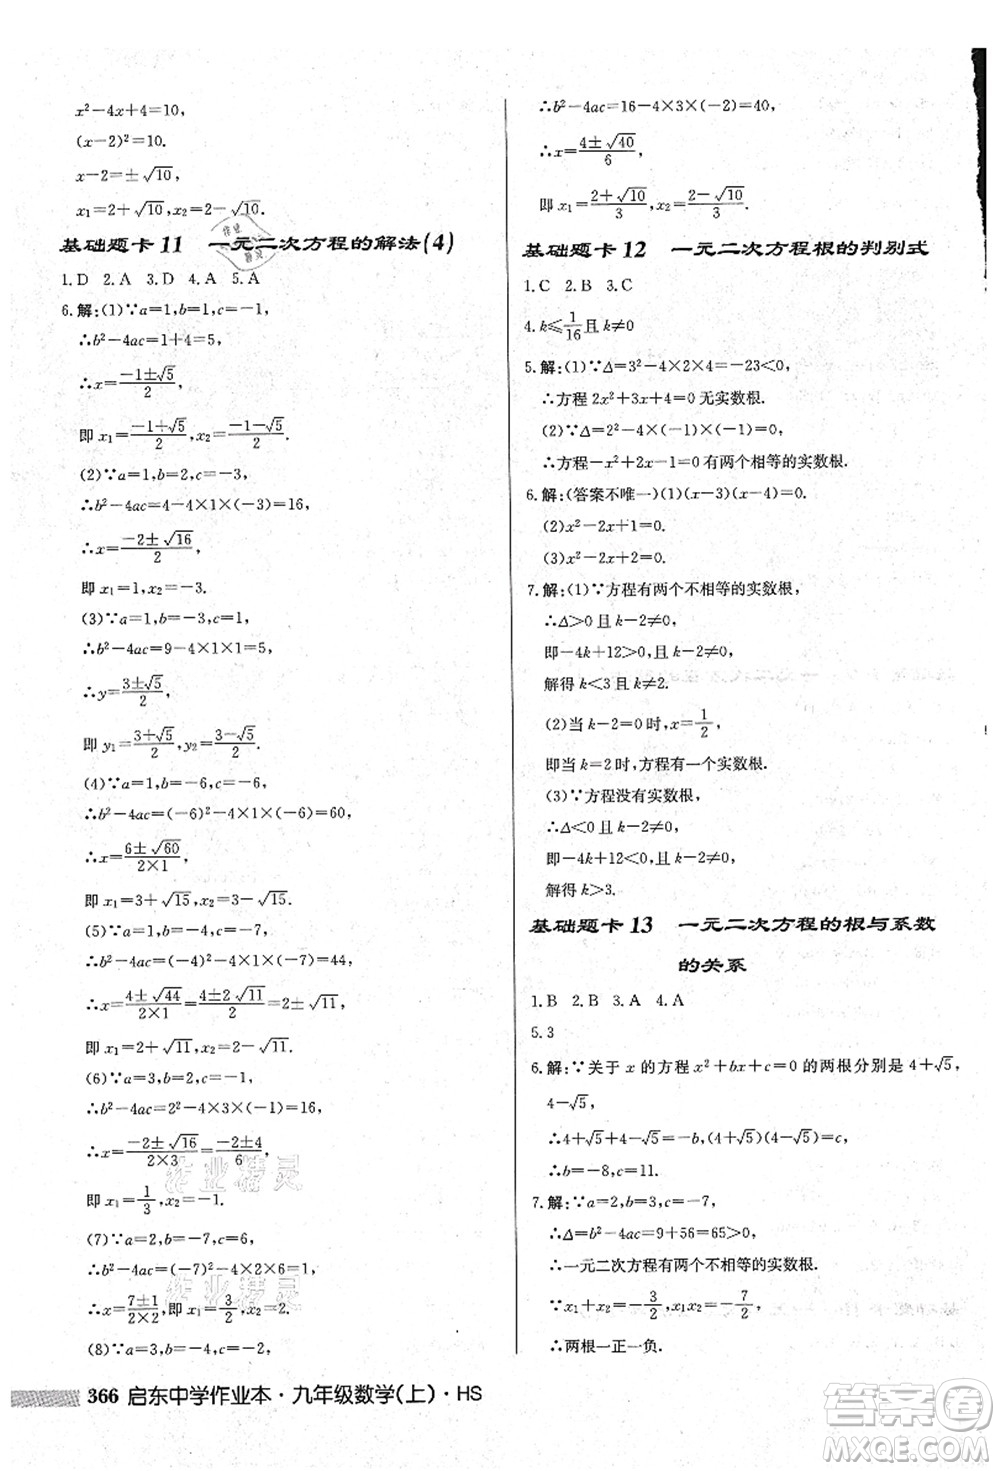 x²-4x+4=10,
(x-2)²=10.
x-2=±√10,
x₁=2+√10,x₂=2-√10.
基础题卡 11 一元二次方程的解法(4)
1.D 2.A 3.D 4.A 5.A
6.解:(1)∵a=1,b=1,c=-1,
∴b²-4ac=1+4=5,
∴x=(-1±√5)/2,
即 x₁=(-1+√5)/2,x₂=(-1-√5)/2.
(2)∵a=1,b=2,c=-3,
∴b²-4ac=4-4×1×(-3)=16,
∴x=(-2±√16)/2,
即 x₁=1,x₂=-3.
(3)∵a=1,b=-3,c=1,
∴b²-4ac=9-4×1×1=5,
∴y=(3±√5)/2,
即 y₁=(3+√5)/2,y₂=(3-√5)/2.
(4)∵a=1,b=-6,c=-6,
∴b²-4ac=(-6)²-4×1×(-6)=60,
∴x=(6±√60)/(2×1),
即 x₁=3+√15,x₂=3-√15.
(5)∵a=1,b=-4,c=-7,
∴b²-4ac=(-4)²-4×1×(-7)=44,
∴x=(4±√44)/(2×1)=(4±2√11)/2=2±√11,
即 x₁=2+√11,x₂=2-√11.
(6)∵a=3,b=2,c=-1,
∴b²-4ac=2²-4×3×(-1)=16,
∴x=(-2±√16)/(2×3)=(-2±4)/6,
即 x₁=1/3,x₂=-1.
(7)∵a=2,b=-7,c=6,
∴b²-4ac=(-7)²-4×2×6=1,
∴x=(7±1)/(2×2),即 x₁=2,x₂=3/2.
(8)∵a=3,b=-4,c=-2,
∴b²-4ac=16-4×3×(-2)=40,
∴x=(4±√40)/6,
即 x₁=(2+√10)/3,x₂=(2-√10)/3.
基础题卡 12 一元二次方程根的判别式
1.C 2.B 3.C
4.k≤1/16且 k≠0
5.解:(1)∵Δ=3²-4×2×4=-23<0,
∴方程 2x²+3x+4=0 无实数根.
(2)∵Δ=2²-4×(-1)×(-1)=0,
∴方程-x²+2x-1=0 有两个相等的实数根.
6.解:(答案不唯一)(1)(x-3)(x-4)=0.
(2)x²-2x+1=0.
(3)x²-2x+5=0.
7.解:(1)∵方程有两个不相等的实数根,
∴Δ>0 且 k-2≠0,
即-4k+12>0,且 k-2≠0,
解得 k<3 且 k≠2.
(2)当 k-2=0 时,x=1/2,
即当 k=2 时,方程有一个实数根.
(3)∵方程没有实数根,
∴Δ<0 且 k-2≠0,
即-4k+12<0,且 k-2≠0,
解得 k>3.
基础题卡 13 一元二次方程的根与系数
的关系
1.B 2.B 3.A 4.A
5.3
6.解:∵关于 x 的方程 x²+bx+c=0 的两根分别是 4+√5,
4-√5,
∴4+√5+4-√5=-b,(4+√5)(4-√5)=c,
∴b=-8,c=11.
7.解:∵a=2,b=3,c=-7,
∴Δ=b²-4ac=9+56=65>0,
∴一元二次方程有两个不相等的实数根.
∵x₁+x₂=-3/2,x₁x₂=-7/2<0,
∴两根一正一负.
366 启东中学作业本·九年级数学(上)·HS
作业精灵
作业精灵
作业精灵
答案圈
MXQE.COM